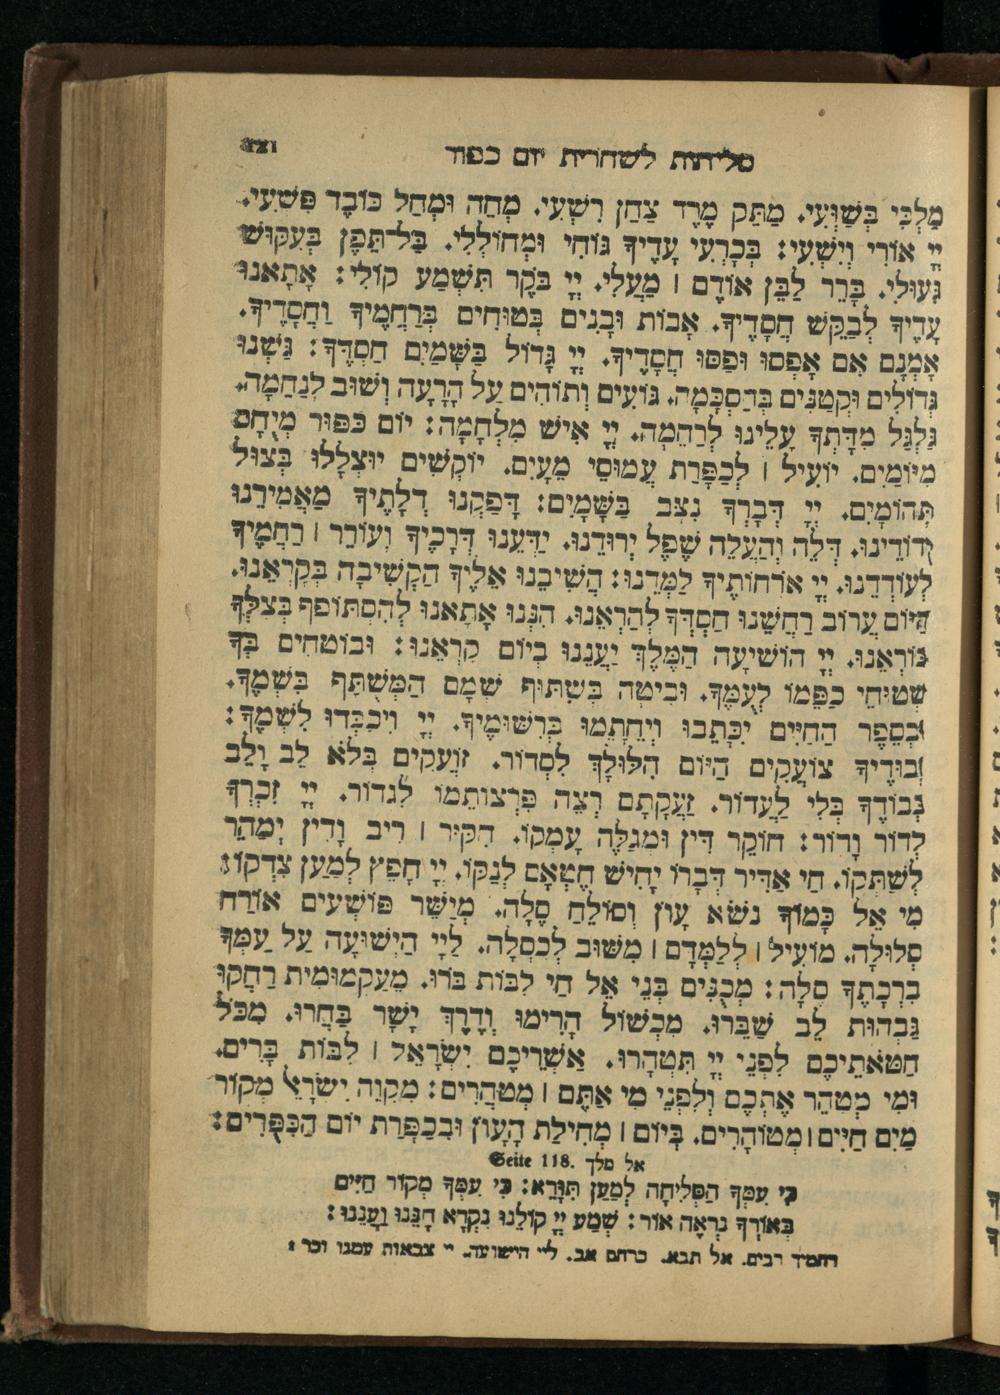 סליחות לשחרית יום כפור
מַלְכִּי בְּשַׁוְּעִי. מַתֵּק מֶרֶד צַחַן רִשְׁעִי. מְחֵה וּמְחַל כּוֹבֶד פִּשְׁעִי.
יְיָ אוֹרִי וְיִשְׁעִי: בְּכָרְעִי עָדֶיךָ גּוֹחִי וּמְחוֹלְלִי. בַּל־תֵּפֶן בְּעִקּוּשׁ
גְּעוּלִי. בָּרֵר לַבֵּן אוֹדֶם ׀ מַעֲלִי. יְיָ בֹּקֶר תִּשְׁמַע קוֹלִי: אָתָאנוּ
עָדֶיךָ לְבַקֵּשׁ חֲסָדֶיךָ. אָבוֹת וּבָנִים בְּטוּחִים בְּרַחֲמֶיךָ וַחֲסָדֶיךָ.
אָמְנָם אִם אָפְסוּ וּפַסּוּ חֲסִידֶיךָ. יְיָ גָּדוֹל בַּשָּׁמַיִם חַסְדֶּךָ: גַּשְׁנוּ
גְּדוֹלִים וּקְטַנִּים בְּהַסְכָּמָה. גּוֹעִים וְתוֹהִים עַל הָרָעָה וְשׁוּב לְנֶחָמָה.
גַּלְגַּל מִדָּתְךָ עָלֵינוּ לְרַחֵמָה. יְיָ אִישׁ מִלְחָמָה: יוֹם כִּפּוּר מְיֻחָס
מִיּוֹמַיִם. יוֹעִיל ׀ לְכַפָּרַת עֲמוּסֵי מֵעָיִם. יוֹקְשִׁים יוּצְלָלוּ בְּצוּל
תְּהוֹמָיִם. יְיָ דְּבָרְךָ נִצָּב בַּשָּׁמָיִם: דָּפַקְנוּ דְלָתֶיךָ מַאֲמִירֵנוּ
וְדוֹדֵינוּ. דְּלֵה וְהַעֲלֵה שֵׁפֶל יְרוּדֵנוּ. יַדְּעֵנוּ דְּרָכֶיךָ וְעוֹרֵר ׀ רַחֲמֶיךָ
לְעוֹדְדֵנוּ. יְיָ אֹרְחוֹתֶיךָ לַמְּדֵנוּ: הֲשִׁיבֵנוּ אֵלֶיךָ הַקְשִׁיבָה בְּקָרְאֵנוּ.
הַיּוֹם עֲרוֹב רַחֲשֵׁנוּ חַסְדְּךָ לְהַרְאֵנוּ. הִנְנוּ אָתָאנוּ לְהִסְתּוֹפֵף בְּצִלְּךָ
בּוֹרְאֵנוּ. יְיָ הוֹשִׁיעָה הַמֶּלֶךְ יַעֲנֵנוּ בְיוֹם קָרְאֵנוּ: וּבוֹטְחִים בְּךָ
שְׁטוּחֵי כַפֵּמוֹ לְעֻמֶּךָ. וּבִיטָה בְּשִׁתּוּף שְׁמָם הַמְּשֻׁתָּף בִּשְׁמֶךָ.
וּבְסֵפֶר הַחַיִּים יִכָּתְבוּ וְיֵחָתְמוּ בְּרִשּׁוּמֶיךָ. יְיָ וִיכַבְּדוּ לִשְׁמֶךָ:
צוֹעֲקִים הַיּוֹם הִלּוּלְךָ לִסְדּוֹר. זוֹעֲקִים בְּלֹא לֵב וָלֵב
בְּלִי לַעֲדוֹר. זַעֲקָתָם רְצֵה פִּרְצוֹתֵמוֹ לִגְדּוֹר. יְיָ זִכְרְךָ
לְדוֹר וָדוֹר: חוֹקֵר דִּין וּמְגַלֶּה עָמְקוֹ. חִקּוּר ׀ רִיב וָדִין יְמַהֵר
לְשַׁתְּקוֹ. חַי אַדִּיר דְּבָרוֹ יָחִישׁ חֶטְאָם לְנַקּוֹ. יְיָ חָפֵץ לְמַעַן צִדְקוֹ:
מִי אֵל כָּמוֹךָ נֹשֵׂא עָוֹן וְסוֹלֵחַ סֶלָה. מְיַשֵּׁר פּוֹשְׁעִים אוֹרַח
סְלוּלָה. מוֹעִיל ׀ לְלַמְּדָם ׀ מִשּׁוּב לְכִסְלָה. לַיְיָ הַיְשׁוּעָה עַל עַמְּךָ
בִרְכָתֶךָ סֶּלָה: מְכֻנִּים בְּנֵי אֵל חַי לִבּוֹת בֹּרוּ. מֵעַקְמוּמִית רַחֲקוּ
גַּבְהוּת לֵב שַׁבֵּרוּ. מִכְשׁוֹל הָרִימוּ וְדֶרֶךְ יָשָׁר בַּחֲרוּ. מִכֹּל
חַטֹּאתֵיכֶם לִפְנֵי יְיָ תִּטְהָרוּ. אַשְׁרֵיכֶם יִשְׂרָאֵל ׀ לִבּוֹת בָּרִים.
וּמִי מְטַהֵר אֶתְכֶם וְלִפְנֵי מִי אַתֶּם ׀ מִטַּהֲרִים: מִקְוֵה יִשְׂרָאֵל מְקוֹר
מַיִם חַיִּים ׀ מְטוֹהָרִים. בְּיוֹם ׀ מְחִילַת הָעָוֹן וּבְכַפָּרַת יוֹם הַכִּפֻּרִים:
אל מלך Seite 118.
כִּי עִמְּךָ הַסְּלִיחָה לְמַעַן תִּוָּרֵא: כִּי עִמְּךָ מְקוֹר חַיִּים
בְּאוֹרְךָ נִרְאֶה אוֹר: שְׁמַע יְיָ קוֹלֵנוּ נִקְרָא חָנֵּנוּ וַעֲנֵנוּ:
רחמיך רבים. אל תבא. כרחם אב. ליי הישועה. יי צבאות עמנו וכו׳: